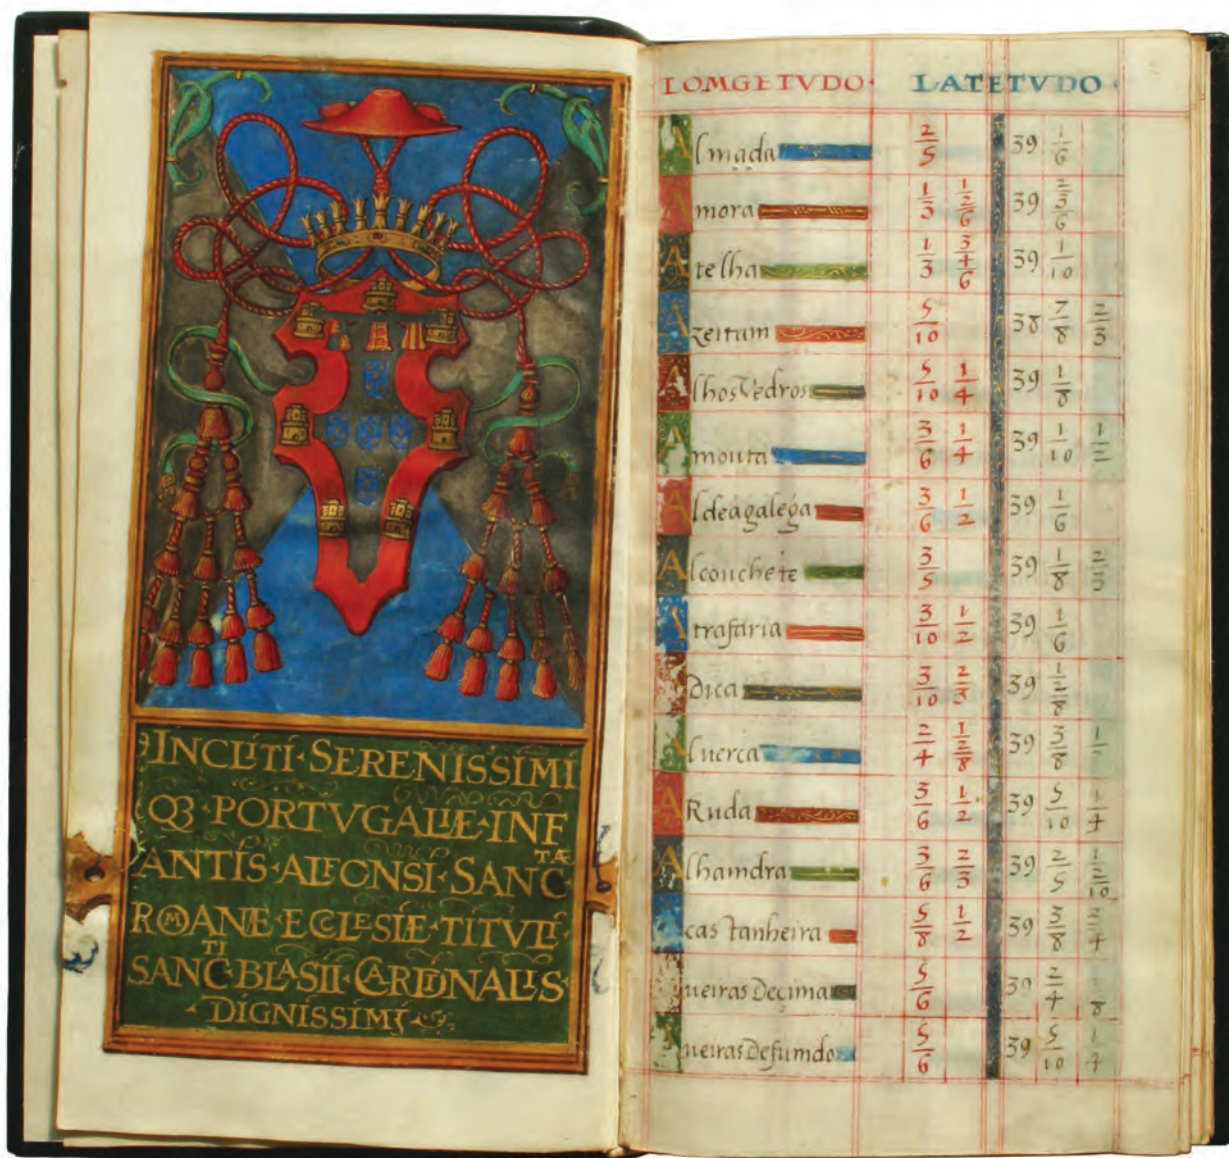 INCLITI·SERENISSIMI
Q3·PORTVGALIÆ·INF
ANTIS·ALFONSI·SANCTÆ
ROMANÆ·ECCLESIÆ·TITVLI·
SANCTI·BLASII·CARDINALIS·
·DIGNISSIMI
LOMGETVDO· LATETVDO·
Almada 2/5 39 1/6
Amora 1/3 39
Atelha 1/3 39 1/10
Azeitam 5/10 38 7/8 2/3
AlhosVedros 5/10 1/4 39 1/8
Amouta 3/6 1/4 39 1/10 1/2
Aldeagalega 3/6 1/2 39 1/6
Alconchete 3/5 39 1/8 2/3
Atrafaria 3/10 1/2 39 1/6
Dica 3/10 2/3 39
Aluerca 2/4 39 3/8
ARuda 3/6 1/2 39 5/10 1/4
Alhamdra 3/6 2/3 39 2/5
castanheira 5/8 1/2 39 3/8
ueirasDecima 5/6 39 2/4
ueirasDefumdo 5/6 39 5/10